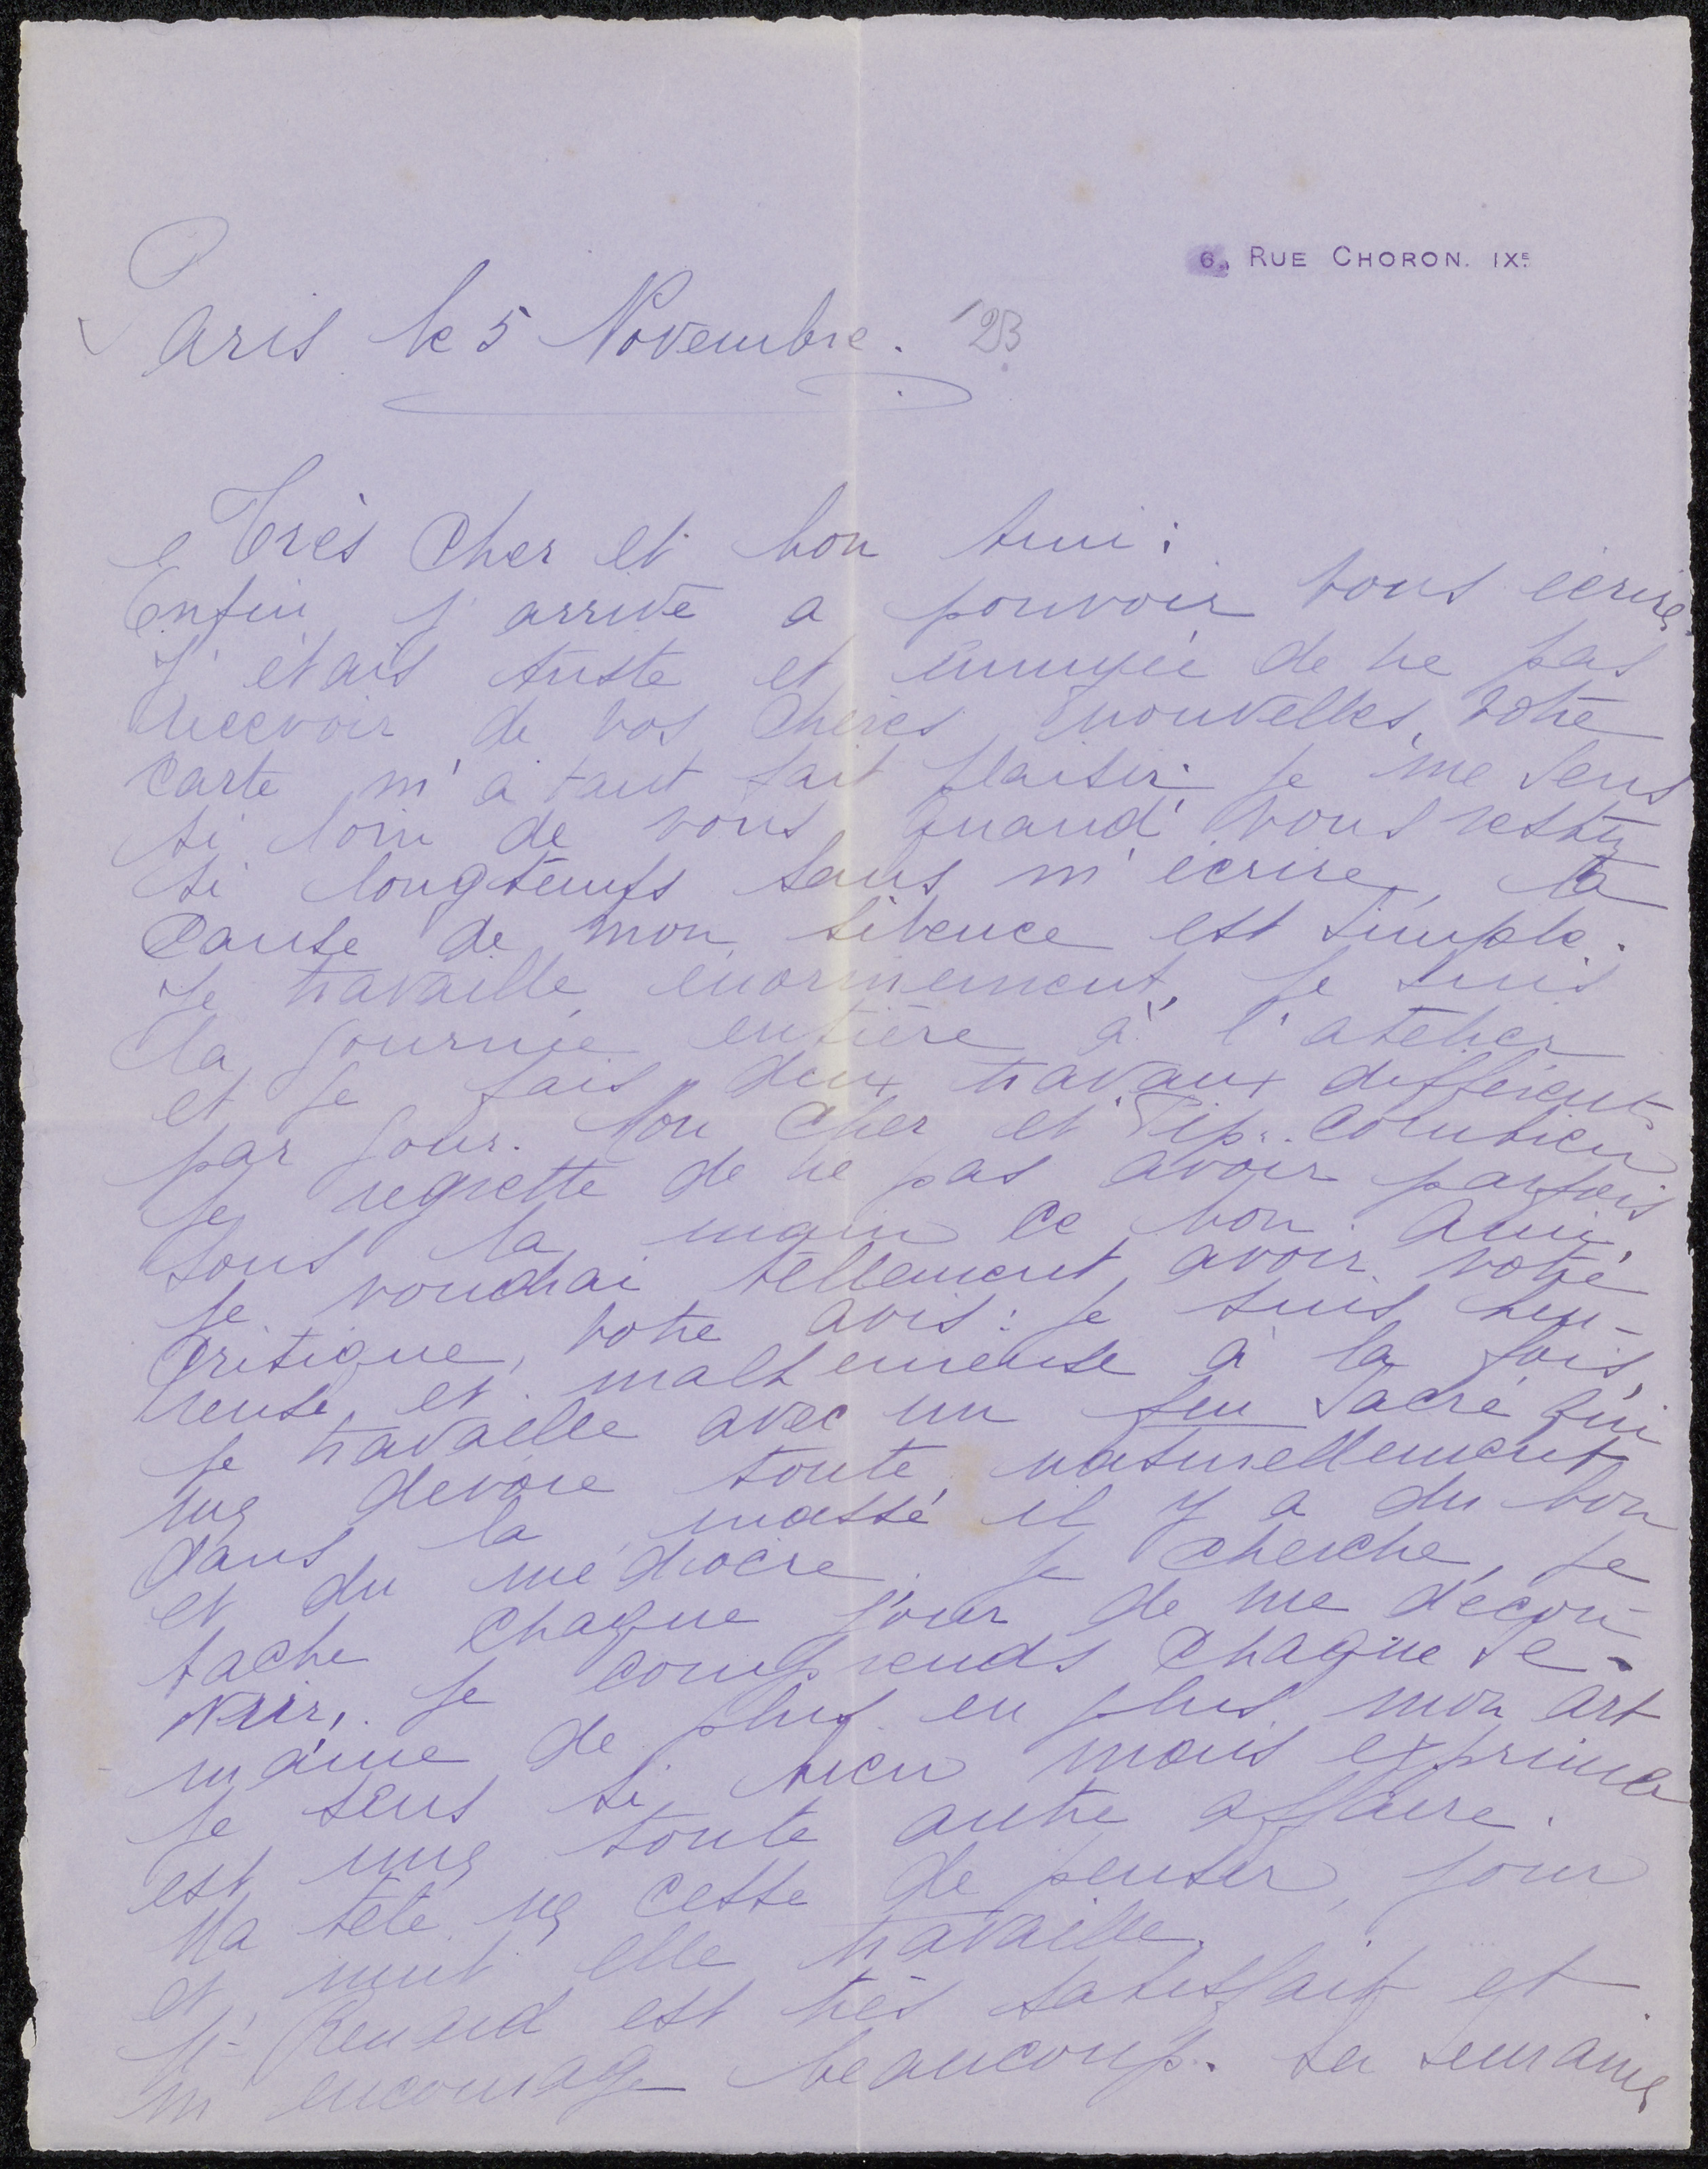 6, RUE CHORON. IXE.
Paris le 5 Novembre. '23
Très Cher et bon Ami:
Enfin j'arrive a pouvoir vous écrire,
J'étais triste et ennuyée de ne pas
recevoir de vos chères nouvelles, votre
carte m'a tant fait plaisir. Je me sens
si loin de vous quand vous restez
si longtemps sans m'écrire, la
cause de mon silence est simple.
Je travaille enormement, je suis
la journée entière à l'atelier
et je fais deux travaux différents
par jour. Mon cher et Pip.. combien
je regrette de ne pas avoir parfois
sous la main ce bon Ami,
je voudrai tellement avoir votre
critique, votre avis: je suis heu-
reuse et malheureuse à la fois,
je travaille avec un feu sacré qui
me devore toute naturellement
dans la masse il y a du bon
et du médiocre. je cherche, je
tache chaque jour de me décou-
vrir, je comprends chaque se-
maine de plus en plus mon art
je sens si bien mais exprimer
est une toute autre affaire.
Ma tête ne cesse de penser, jour
et nuit elle travaille.
Mr Renard est très satisfait et
m'encourage beaucoup. La semaine